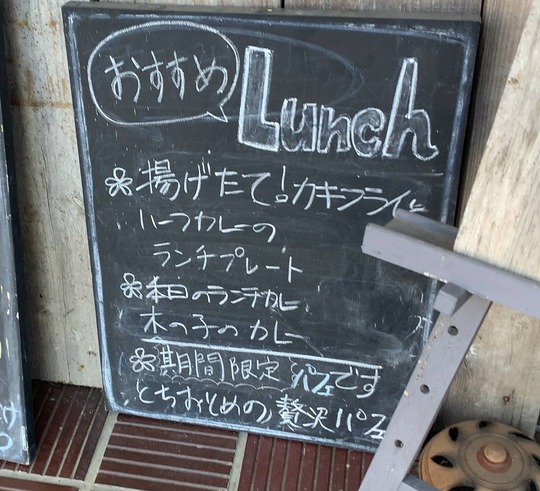 おすすめ
Lunch
揚げたて!カキフライと
ハーフカレーの
ランチプレート
本日のランチカレー
木の子のカレー
期間限定 パフェです
とちおとめの 贅沢パフェ